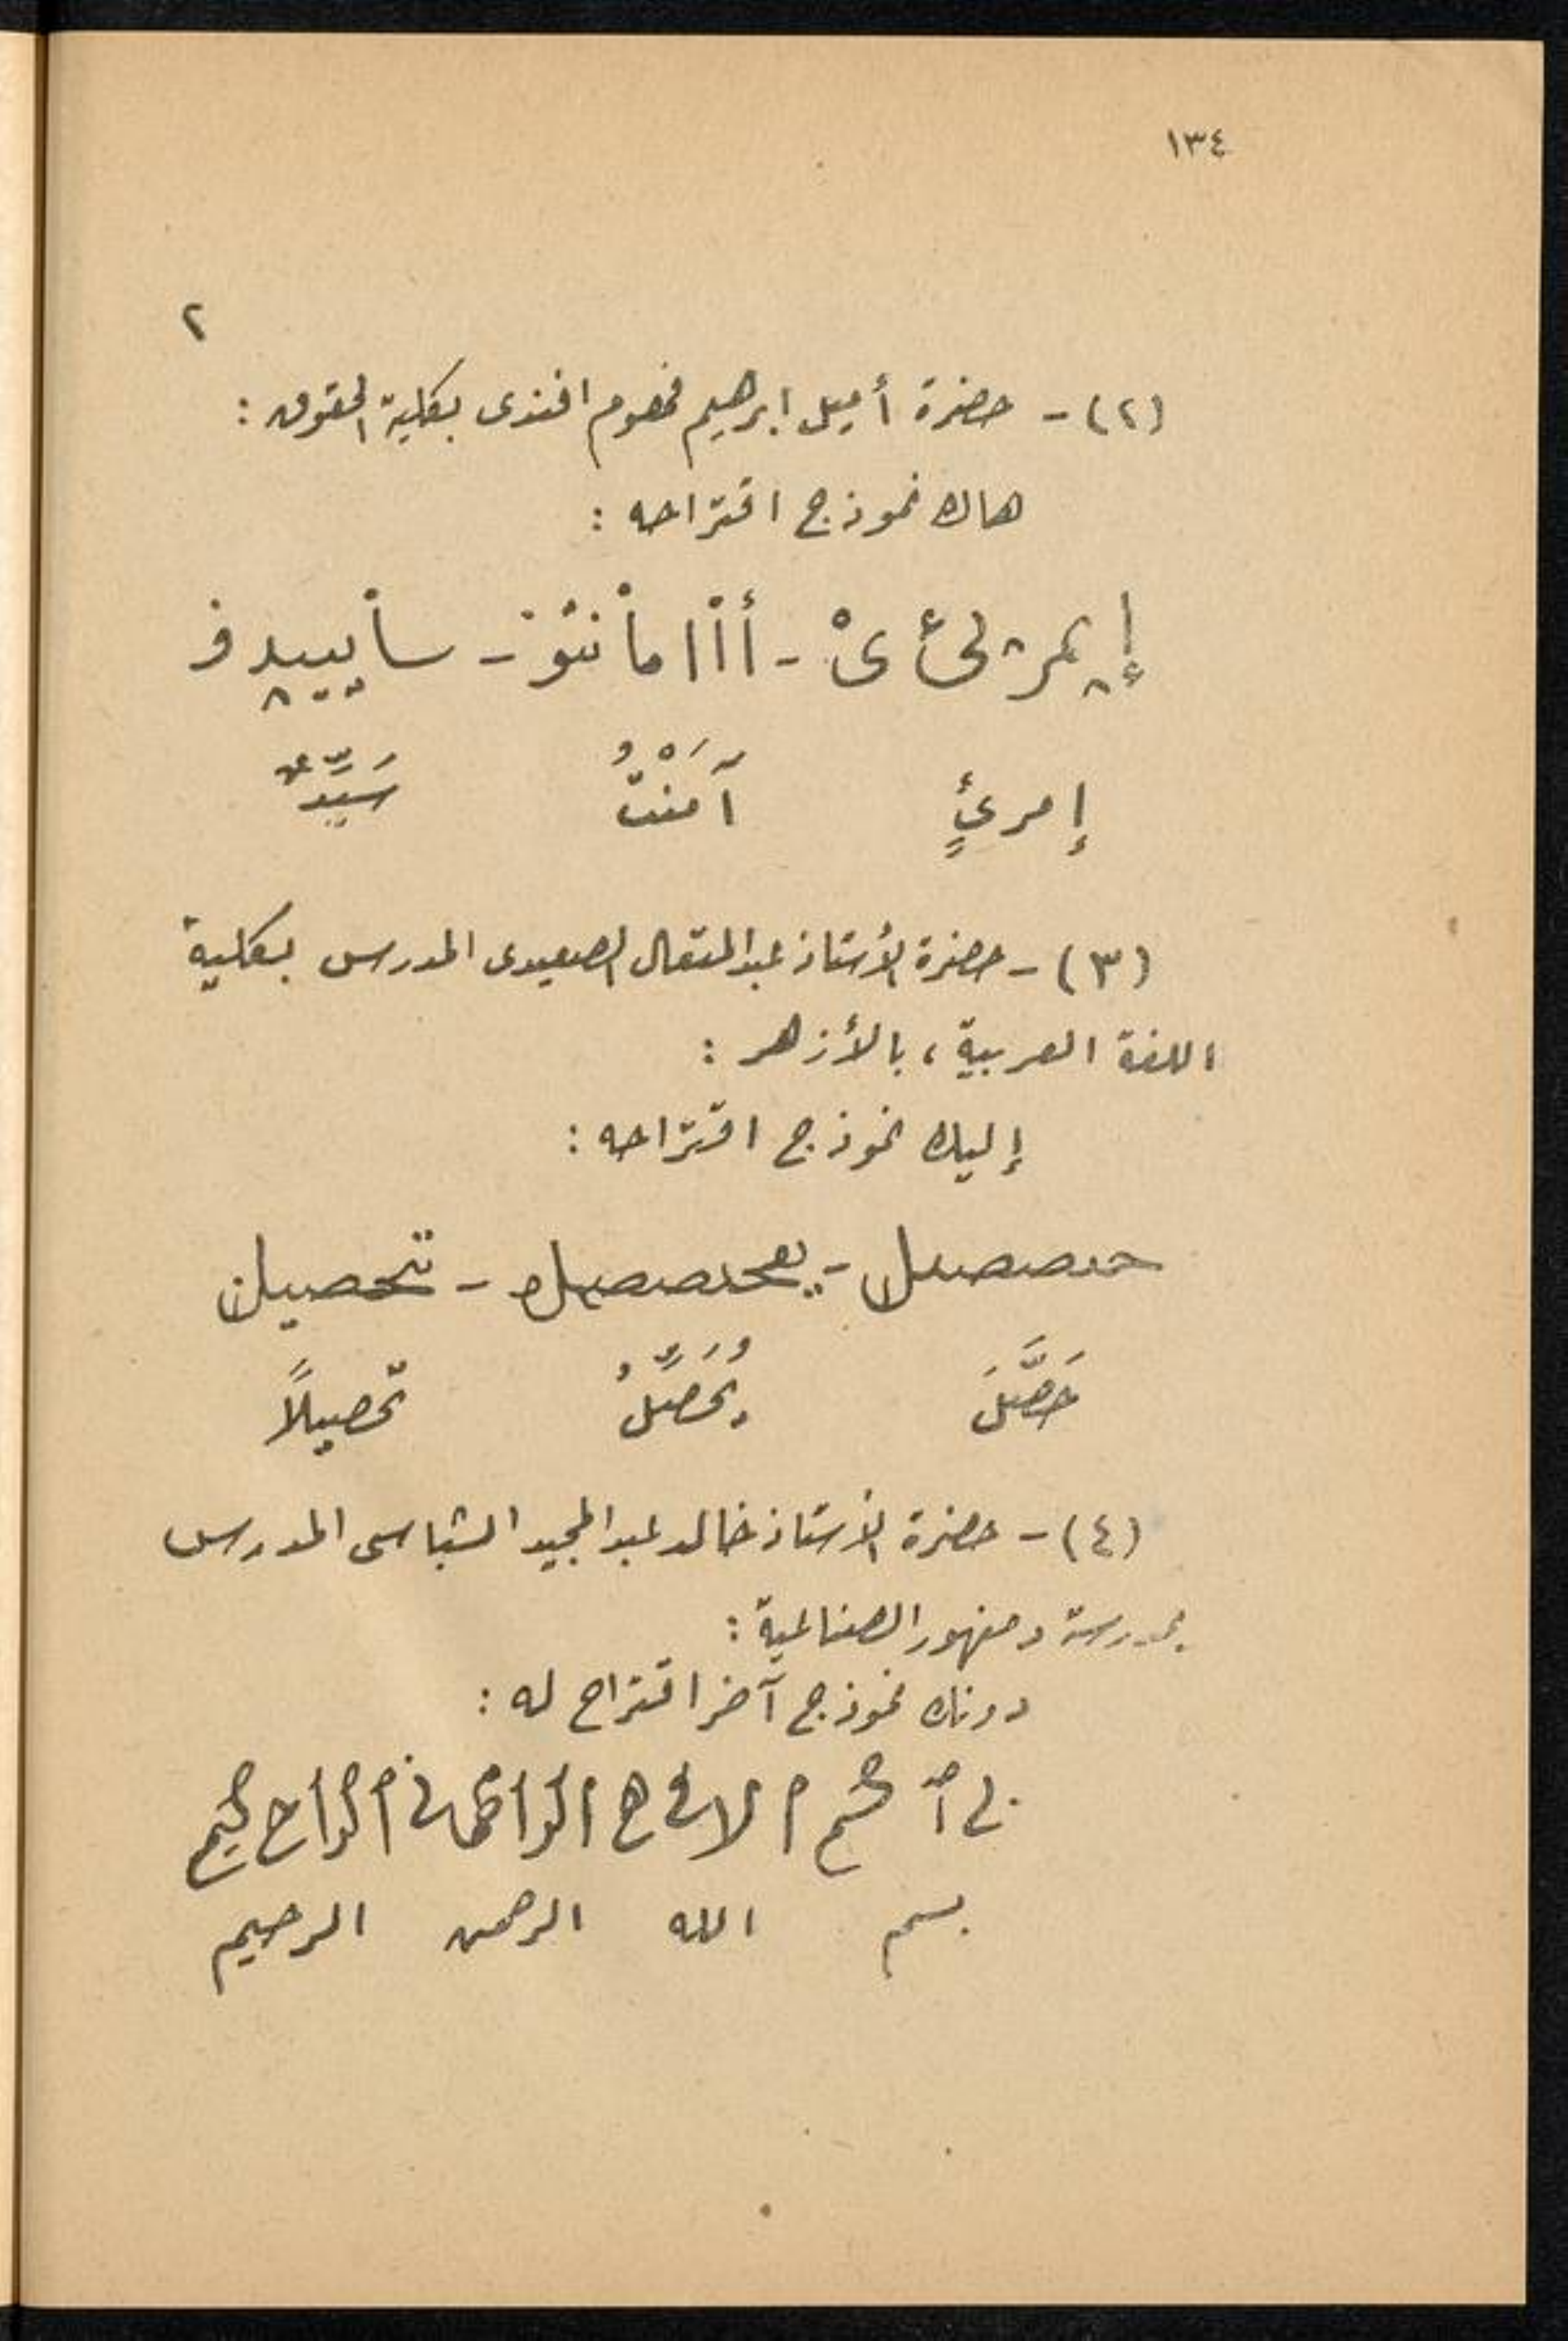 ١٣٤
٢
(٢) - حضرة أميل ابرهيم افندى بكلية الحقوق :
هاك نموذج اقتراحه :
إمرئٍ آمَنْتُ سَيِّدٌ
(٣) - حضرة الأستاذ عبد المتعال الصعيدى المدرس بكلية
اللغة العربية ، بالأزهر :
إليك نموذج اقتراحه :
حَصَّلَ يُحَصِّلُ تحصيلاً
(٤) - حضرة الأستاذ خالد عبد المجيد الشباسى المدرس
بمدرسة دمنهور الصناعية :
دونك نموذج آخر اقتراح له :
بسم الله الرحمن الرحيم